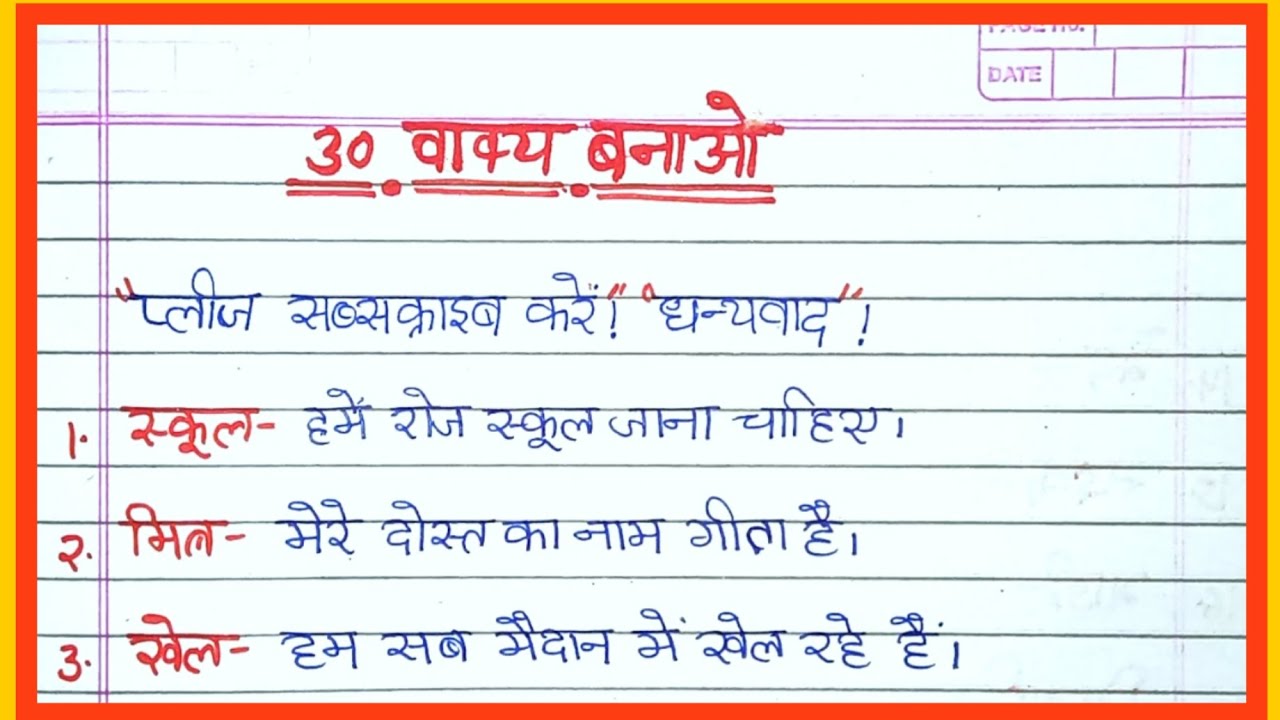 PAGE NO.
DATE
30 वाक्य बनाओ
"प्लीज सब्सक्राइब करें!" "धन्यवाद"!
1. स्कूल- हमें रोज स्कूल जाना चाहिए।
२. मित्र- मेरे दोस्त का नाम गीता है।
3. खेल- हम सब मैदान में खेल रहे हैं।